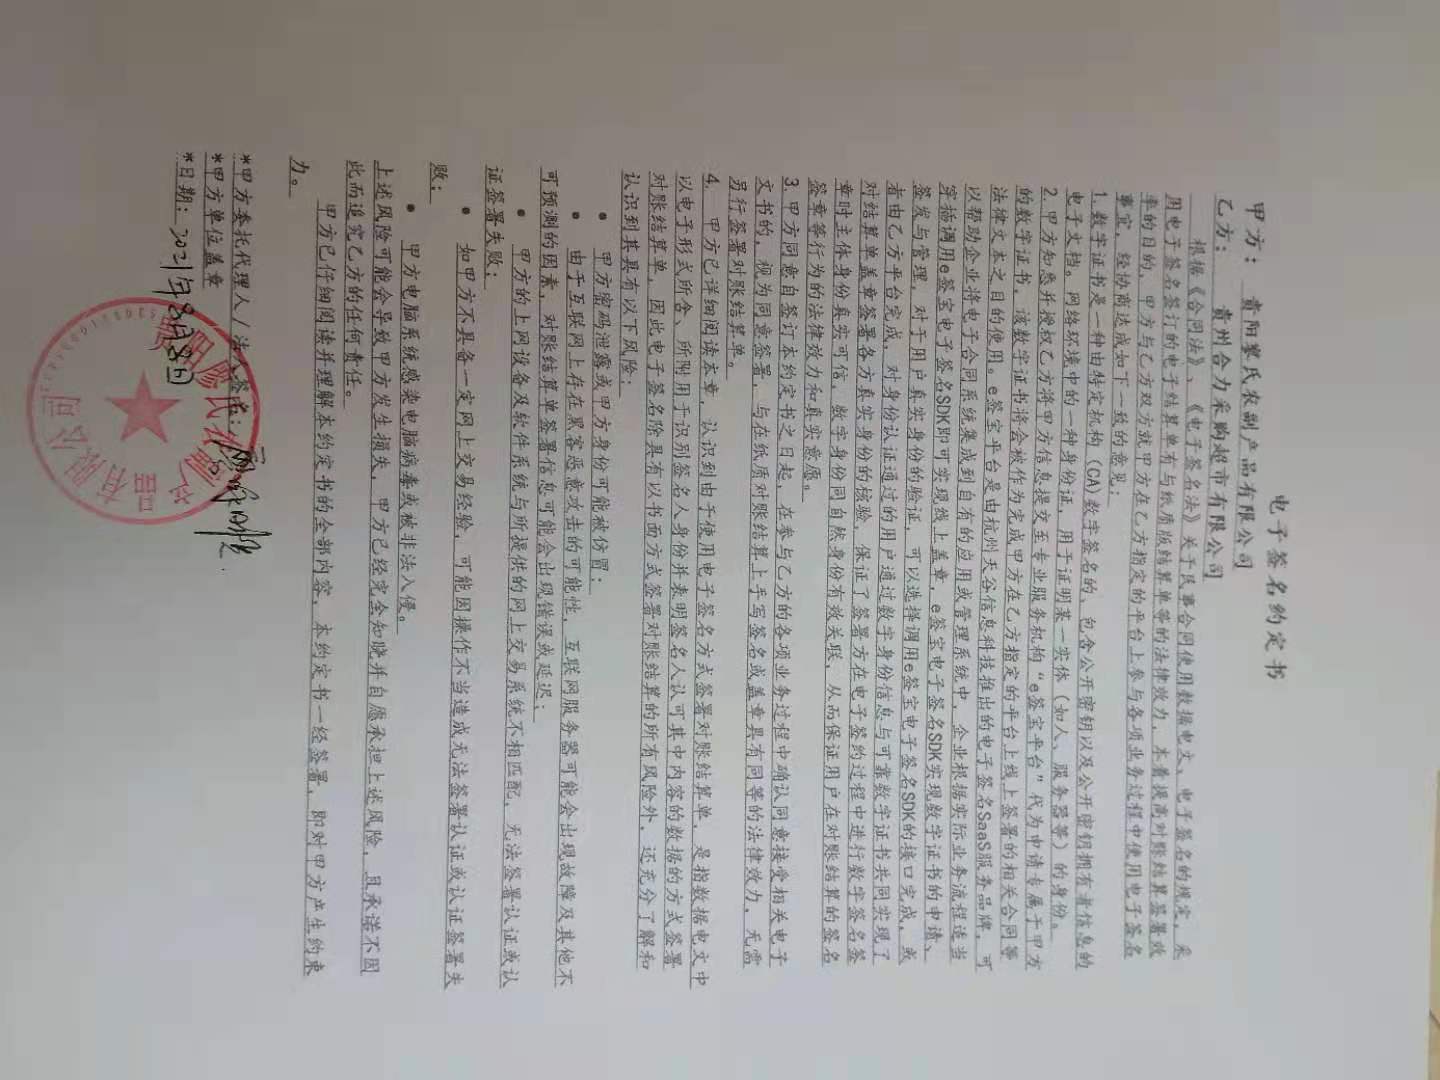 电子签名约定书
甲方： 贵阳黎氏农副产品有限公司
乙方： 贵州合力采购超市有限公司
根据《合同法》、《电子签名法》关于民事合同使用数据电文、电子签名的规定，采
用电子签名签订的电子结算单有与纸质版结算单等的法律效力，本着提高对账结算签署效
率的目的，甲方与乙方双方就甲方在乙方指定的平台上参与各项业务过程中使用电子签名
事宜，经协商达成如下一致的意见：
1.数字证书是一种由特定机构（CA)数字签名的、包含公开密钥以及公开密钥拥有者信息的
电子文档。网络环境中的一种身份证，用于证明某一实体（如人、服务器等）的身份。
2.甲方知悉并授权乙方将甲方信息提交至专业服务机构“e签宝平台”代为申请专属于甲方
的数字证书，该数字证书将会被作为完成甲方在乙方指定的平台上线上签署的相关合同等
法律文本之目的使用。e签宝平台是由杭州天谷信息科技推出的电子签名SaaS服务品牌，可
以帮助企业将电子合同系统集成到自有的应用或管理系统中，企业根据实际业务流程适当
穿插调用e签宝电子签名SDK即可实现线上盖章，e签宝电子签名SDK实现数字证书的申请、
签发与管理，对于用户真实身份的验证，可以选择调用e签宝电子签名SDK的接口完成，或
者由乙方平台完成，对身份认证通过的用户通过数字身份信息与可靠数字证书共同实现了
对结算单盖章签署各方真实身份的核验，保证了签署方在电子签约过程中进行数字签名签
章时主体身份真实可信，数字身份同自然身份有效关联，从而保证用户在对账结算的签名
签章等行为的法律效力和真实意愿。
3.甲方同意自签订本约定书之日起，在参与乙方的各项业务过程中确认同意接受相关电子
文书的，视为同意签署，与在纸质对账结算上手写签名或盖章具有同等的法律效力，无需
另行签署对账结算单。
4. 甲方已详细阅读本章，认识到由于使用电子签名方式签署对账结算单，是指数据电文中
以电子形式所含、所附用于识别签名人身份并表明签名人认可其中内容的数据的方式签署
对账结算单，因此电子签名除具有以书面方式签署对账结算的所有风险外，还充分了解和
认识到其具有以下风险：
● 甲方密码泄露或甲方身份可能被仿冒；
● 由于互联网上存在黑客恶意攻击的可能性，互联网服务器可能会出现故障及其他不
可预测的因素，对账结算单签署信息可能会出现错误或延迟；
● 甲方的上网设备及软件系统与所提供的网上交易系统不相匹配，无法签署认证或认
证签署失败；
● 如甲方不具备一定网上交易经验，可能因操作不当造成无法签署认证或认证签署失
败；
● 甲方电脑系统感染电脑病毒或被非法入侵。
上述风险可能会导致甲方发生损失，甲方已经完全知晓并自愿承担上述风险，且承诺不因
此而追究乙方的任何责任。
甲方已仔细阅读并理解本约定书的全部内容，本约定书一经签署，即对甲方产生约束
力。
*甲方委托代理人/法人签名：
*甲方单位盖章
*日期：2021年8月8日